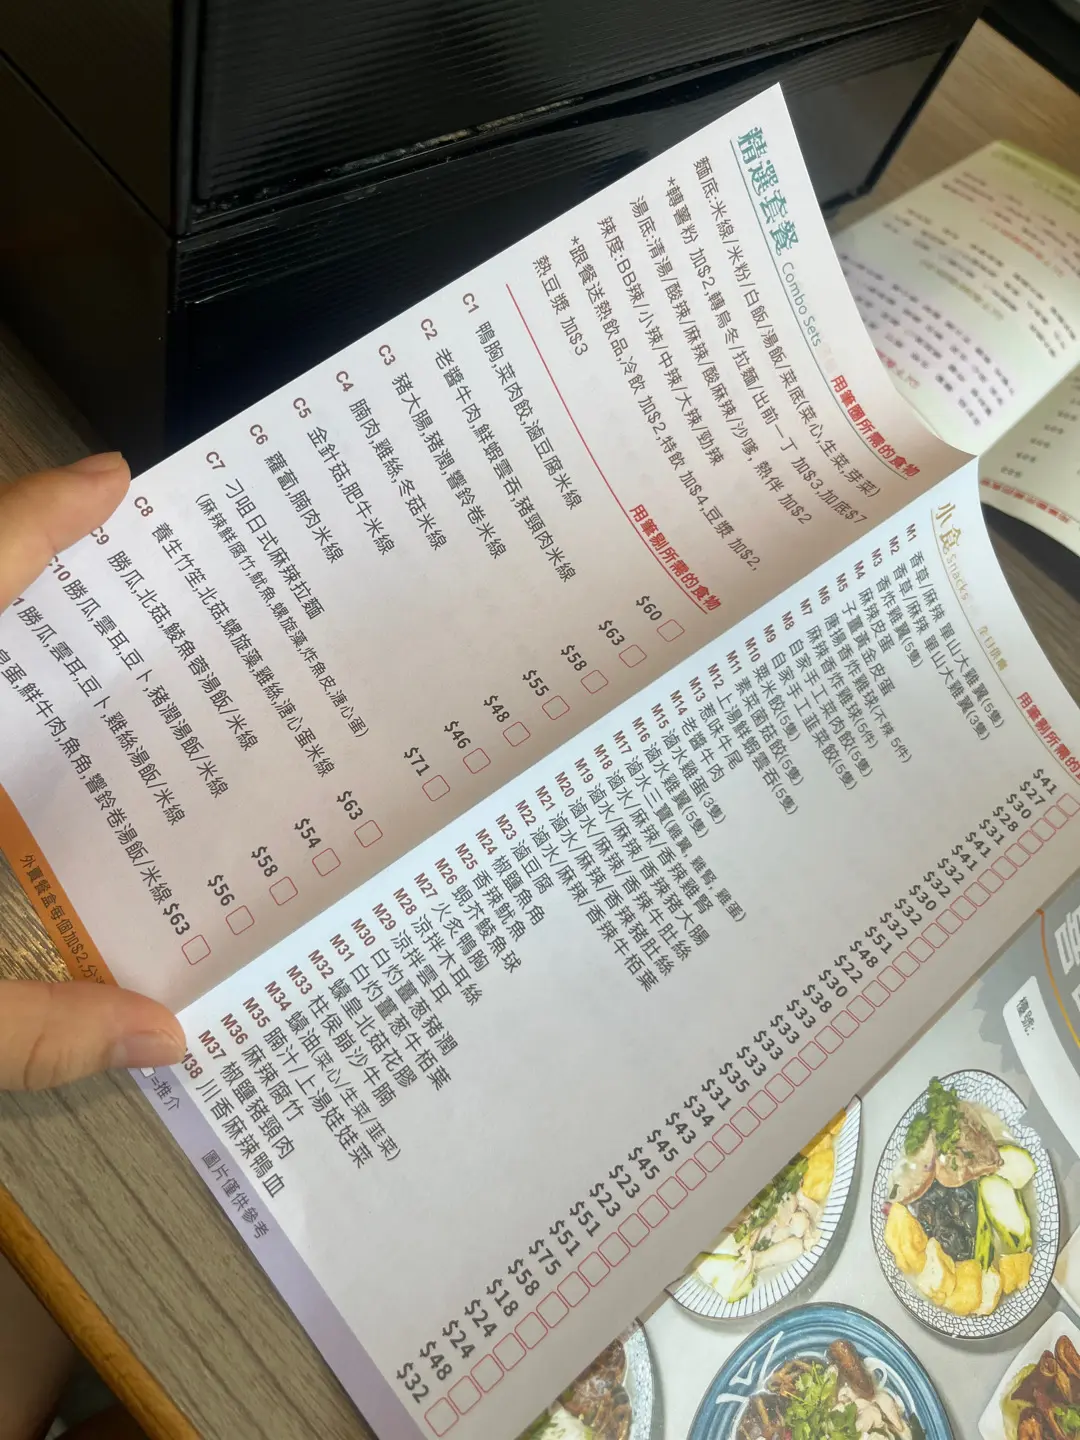 精選套餐 Combo Sets
用筆圈所需的食物
麵底:米線/米粉/白飯/湯飯/菜底(菜心,生菜,芽菜)
*轉薯粉 加$2,轉烏冬/拉麵/出前一丁 加$3,加底$7
湯底:清湯/酸辣/麻辣/酸麻辣/沙嗲, 熱伴 加$2
辣度:BB辣/小辣/中辣/大辣/勁辣
*跟餐送熱飲品,冷飲 加$2,特飲 加$4,豆漿 加$2,
熱豆漿 加$3
用筆剔所需的食物
C1 鴨胸,菜肉餃,滷豆腐米線 $60
C2 老醬牛肉,鮮蝦雲吞,豬頸肉米線 $63
C3 豬大腸,豬潤,響鈴卷米線 $58
C4 腩肉,雞絲,冬菇米線 $55
C5 金針菇,肥牛米線 $48
C6 蘿蔔,腩肉米線 $46
C7 刁咀日式麻辣拉麵 $71
(麻辣鮮腐竹,魷魚,螺旋藻,炸魚皮,溏心蛋)
C8 養生竹笙,北菇,螺旋藻,雞絲,溏心蛋米線 $63
C9 勝瓜,北菇,鯪魚蓉湯飯/米線 $54
C10 勝瓜,雲耳,豆卜,豬潤湯飯/米線 $58
1 勝瓜,雲耳,豆卜,雞絲湯飯/米線 $56
皮蛋,鮮牛肉,魚角,響鈴卷湯飯/米線 $63
外賣餐盒每個加$2,分
小食 Snacks 全日供應
用筆剔所需的
M1 香草/麻辣 富山大雞翼(5隻) $41
M2 香草/麻辣 富山大雞翼(3隻) $27
M3 香炸雞翼(5隻) $28
M4 麻辣皮蛋 $31
M5 子薑黃金皮蛋 $41
M6 唐揚香炸雞球(不辣 5件) $41
M7 麻辣香炸雞球(5件) $32
M8 自家手工菜肉餃(5隻) $30
M9 自家手工韮菜餃(5隻) $32
M10 粟米餃(5隻) $32
M11 素菜菌菇餃(5隻) $32
M12 上湯鮮蝦雲吞(5隻)
M13 惹味牛尾 $51
M14 老醬牛肉 $48
M15 滷水雞蛋(3隻) $22
M16 滷水雞翼(5隻) $30
M17 滷水三寶(雞翼, 雞腎, 雞蛋) $38
M18 滷水/麻辣/香辣雞腎 $33
M19 滷水/麻辣/香辣豬大腸 $33
M20 滷水/麻辣/香辣牛肚絲 $33
M21 滷水/麻辣/香辣豬肚絲 $33
M22 滷水/麻辣/香辣牛栢葉 $35
M23 滷豆腐 $31
M24 椒鹽魚角 $34
M25 香辣魷魚 $43
M26 蜆芥鯪魚球 $45
M27 火炙鴨胸 $45
M28 涼拌木耳絲 $23
M29 涼拌雲耳 $23
M30 白灼薑葱豬潤 $51
M31 白灼薑葱牛栢葉 $51
M32 蠔皇北菇花膠 $75
M33 柱侯崩沙牛腩 $58
M34 蠔油(菜心/生菜/韮菜) $18
M35 腩汁/上湯娃娃菜 $24
M36 麻辣腐竹 $24
M37 椒鹽豬頸肉 $48
M38 川香麻辣鴨血 $32
=推介
圖片僅供參考
檯號: